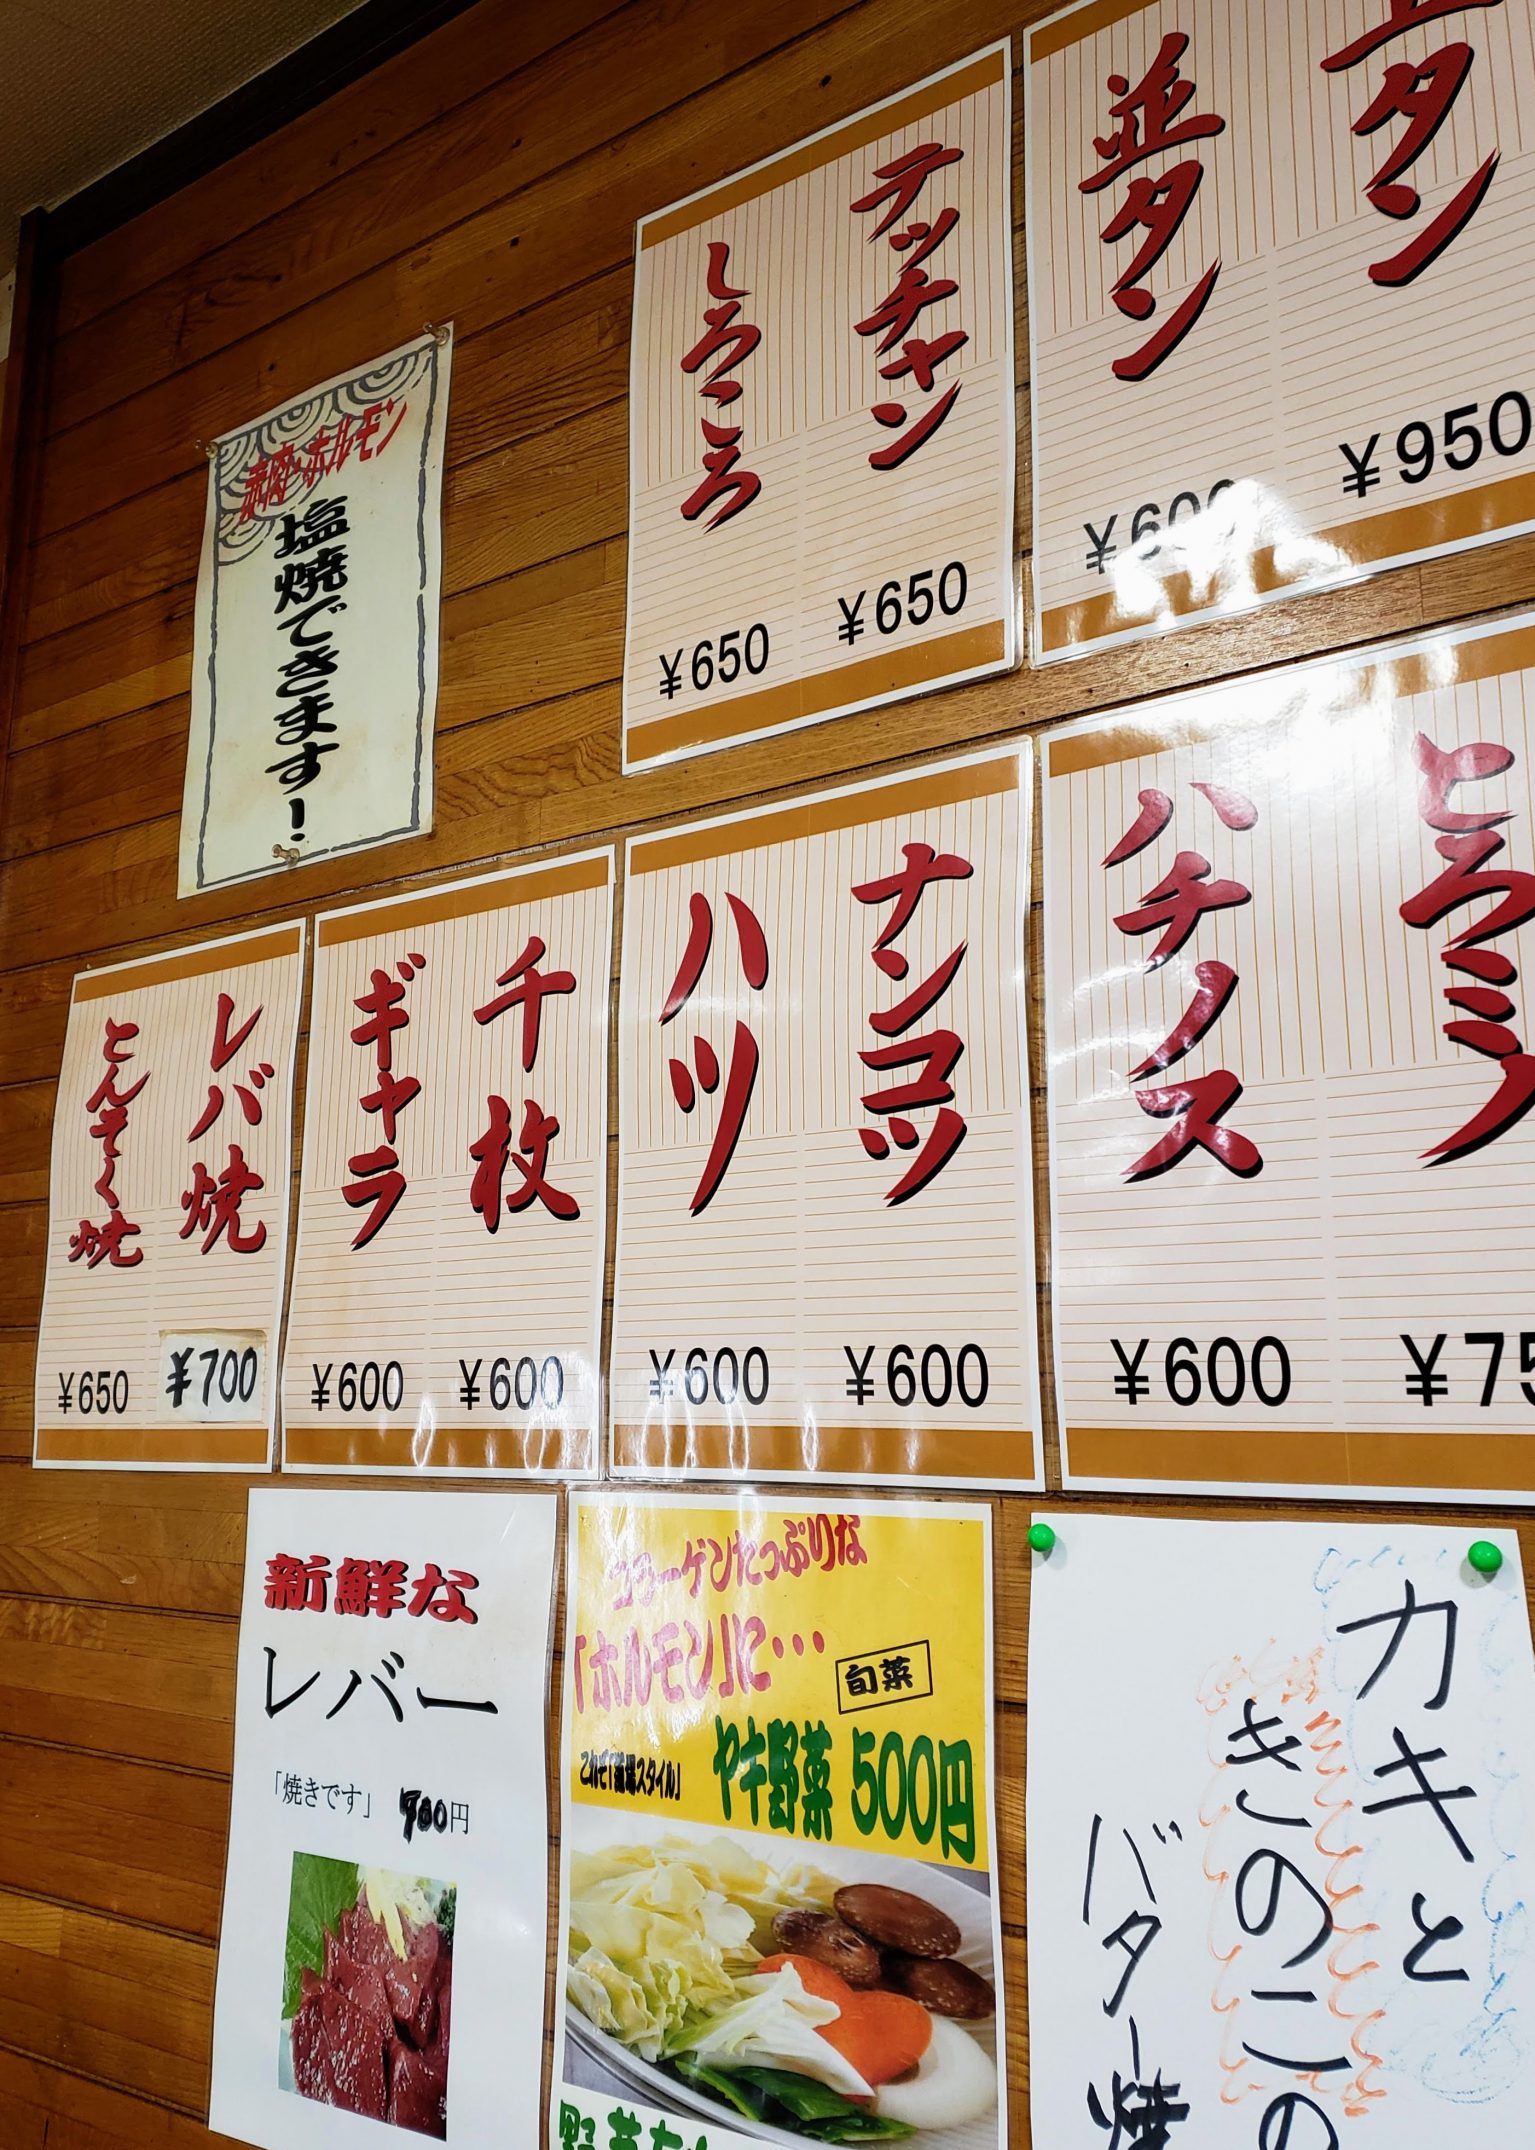 上タン
¥950
並タン
¥600
テッチャン
¥650
しろころ
¥650
赤肉・ホルモン
塩焼できます!
とろミノ
ハチノス
¥600
ナンコツ
¥600
ハツ
¥600
千枚
¥600
ギャラ
¥600
レバ焼
¥700
とんそく焼
¥650
新鮮な
レバー
「焼きです」
円
コラーゲンたっぷりな
「ホルモン」に・・・
旬菜
ヤキ野菜 500円
カキと
きのこの
バター焼